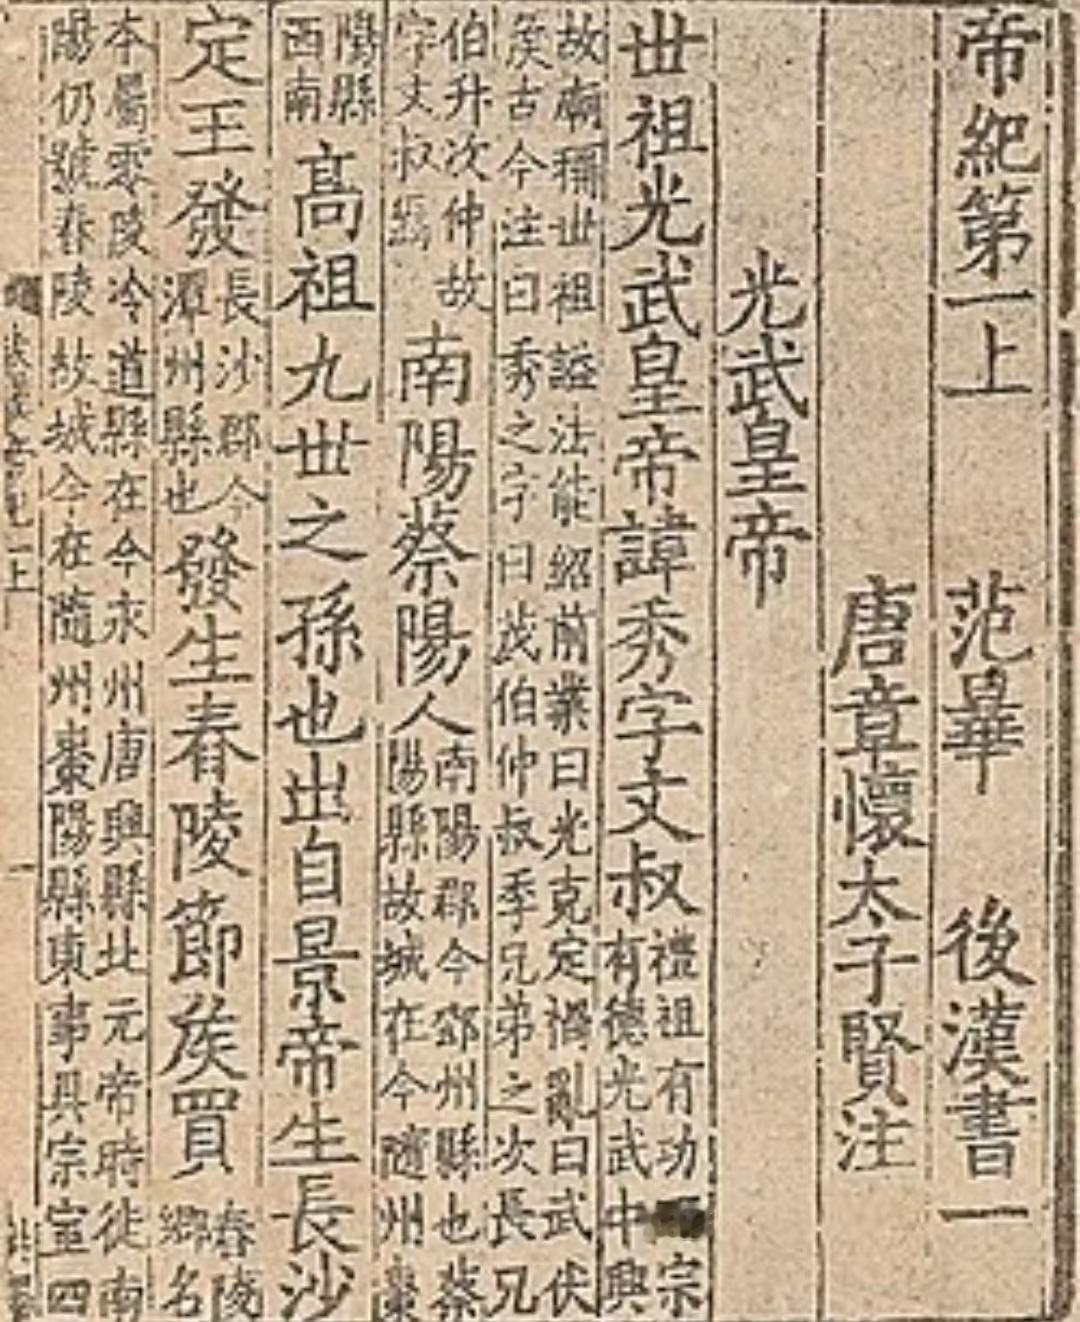 帝紀第一上 范曄 後漢書一
唐章懷太子賢注
光武皇帝
世祖光武皇帝諱秀字文叔
禮祖有功宗
有德光武中興
故廟稱世祖謚法能紹前業曰光克定禍亂曰武伏
侯古今注曰秀之字曰茂伯仲叔季兄弟之次長兄
伯升次仲故
字文叔焉
南陽蔡陽人
南陽郡今鄧州縣也蔡
陽縣故城在今隨州棗
陽縣
西南
高祖九世之孫也出自景帝生長沙
定王發
長沙郡今
潭州縣也
發生春陵節侯買
春陵
鄉名
本屬零陵冷道縣在今永州唐興縣北元帝時徙南
陽仍號春陵故城今在隨州棗陽縣東事具宗室四